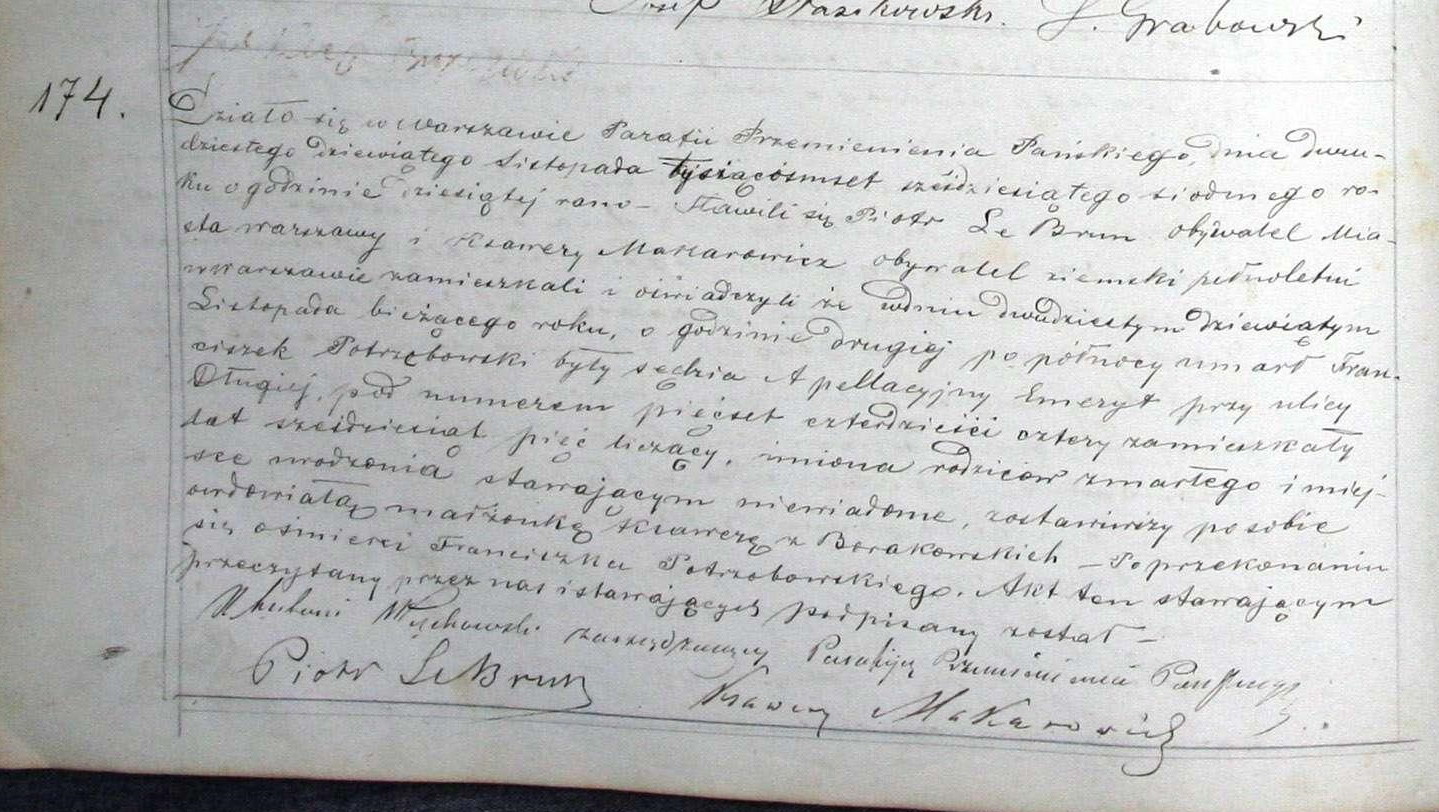 Józef Stasikowski. J. Grabowski
174.
Działo się w Warszawie Parafii Przemienienia Pańskiego, dnia dwu-
dziestego dziewiątego Listopada tysiącósmset sześdziesiątego siodmego ro-
ku o godzinie dziesiątej rano – Stawili się Piotr Le Brun obywatel Mia-
sta Warszawy i Ksawery Makarowicz obywatel ziemski pełnoletni
w Warszawie zamieszkali i oświadczyli że w dniu dwudziestym dziewiątym
Listopada bieżącego roku, o godzinie drugiej po północy umarł Fran-
ciszek Potrzobowski były sędzia Apellacyjny Emeryt przy ulicy
Długiej, pod numerem pięćset czterdzieści cztery zamieszkały
lat sześdziesiat pięć liczący, imiona rodziców zmarłego i miej-
sce urodzenia stawającym niewiadome, zostawiwszy po sobie
owdowiałą małżonkę Ksawerę z Borakowskich – Po przekonaniu
się o śmierci Franciszka Potrzobowskiego. Akt ten stawającym
przeczytany przez nas i stawających podpisany został –
Wychowski zarządzający Parafiją Przemienienia Pańskiego
Piotr LeBrun Ksawery Makarowicz